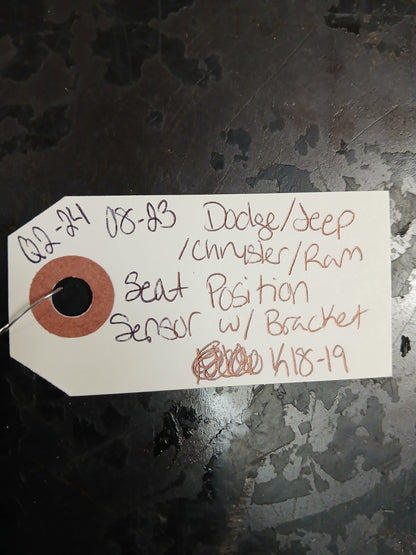 Q2-24 08-23 Dodge/Jeep
/Chrysler/Ram
Seat Position
Sensor w/ Bracket
K18-19